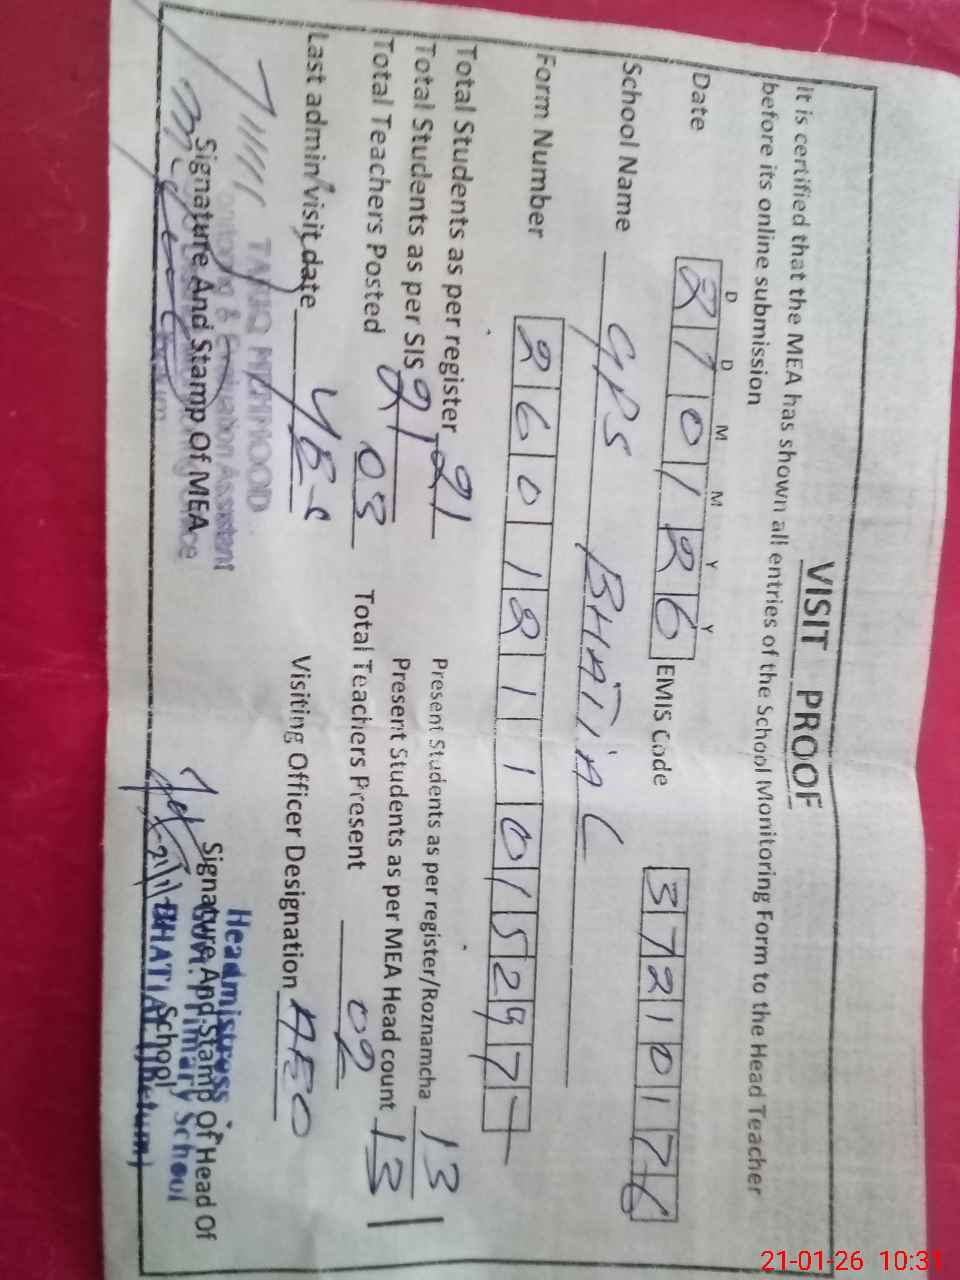 VISIT PROOF
It is certified that the MEA has shown all entries of the School Monitoring Form to the Head Teacher
before its online submission
D D M M Y Y
Date 210126 EMIS Code 37210176
School Name GPS BHATIAL
Form Number 2601211015297
Total Students as per register 21 Present Students as per register/Roznamcha 13
Total Students as per SIS 21 Present Students as per MEA Head count 13
Total Teachers Posted 03 Total Teachers Present 02
Last admin visit date YES Visiting Officer Designation AEO
TARIQ MEHMOOD
Monitoring & Evaluation Assistant
Signature And Stamp Of MEA
Headmistress
Govt. Primary School
BHATIAL
Signature And Stamp Of Head Of
School
21-01-26 10:31